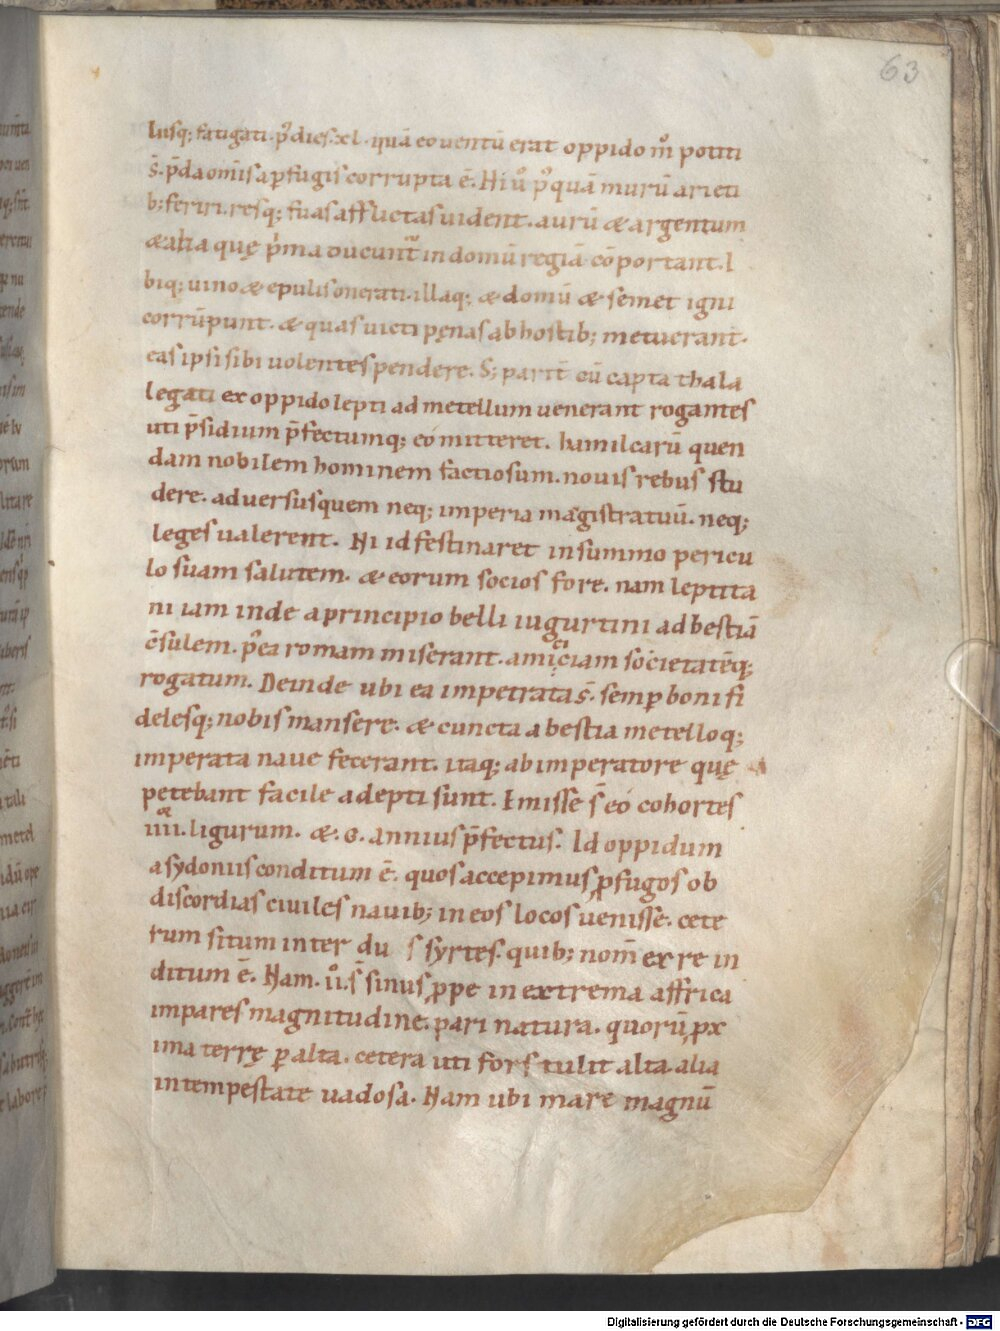 63
lusq; fatigati. p̉ dies. xl. quā eo ventū erat oppido m̊ potiti
s̄. p̄da om̄is a pfugis corrupta ē. Hi ů p̉quā murū arieti
b; feriri. resq; suas afflictas uident. aurū & argentum
& alia quę p̉ma ducunt̃ in domū regiā cōportant. I
biq; uino & epulis onerati. illaq; & domū & semet igni
corrūpunt. & quas uicti pęnas ab hostib; metuerant.
eas ipsi sibi uolentes pendere. S; parit̄ cū capta thala
legati ex oppido lepti ad metellum uenerant rogantes
uti p̄sidium p̄fectumq; eo mitteret. hamilcarū quen
dam nobilem hominem factiosum. nouis rebus stu
dere. aduersus quem neq; imperia magistratuū. neq;
leges ualerent. Ni id festinaret in summo pericu
lo suam salutem. & eorum socios fore. nam leptita
ni iam inde a principio belli iugurtini ad bestiā
c̄sulem. p̉ea romam miserant. amiciciam societatēq;
rogatum. Deinde ubi ea impetrata s̄. semp boni fi
delesq; nobis mansere. & cuncta a bestia metelloq;
imperata naue fecerant. itaq; ab imperatore quę
petebant facile adepti sunt. Emisse s̄ eo cohortes
iiii. ligurum. &. G. annius p̄fectus. Id oppidum
a sydoniis conditum ē. quos accepimus pfugos ob
discordias ciuiles nauib; in eos locos uenisse. cete
rum situm inter du s syrtes. quib; nom̄ ex re in
ditum ē. Nam. ů. s̄ sinus ppe in extrema affrica
impares magnitudine. pari natura. quorū px
ima terrę palta. cetera uti fors tulit alta. alia
in tempestate uadosa. Nam ubi mare magnū
Digitalisierung gefördert durch die Deutsche Forschungsgemeinschaft - DFG